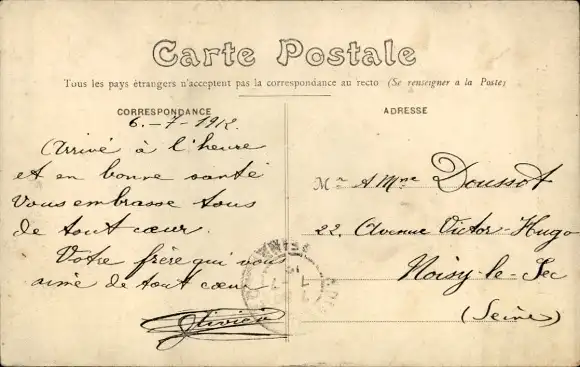 Carte Postale
Tous les pays étrangers n'acceptent pas la correspondance au recto (Se renseigner à la Poste)
CORRESPONDANCE
ADRESSE
6.-7-1912.
Arrivé à l'heure
et en bonne santé
Vous embrasse tous
de tout cœur.
Votre frère qui vous
aime de tout cœur
Olivier
Mr & Mme Doussot
22. Avenue Victor-Hugo
Noisy-le-Sec
(Seine)